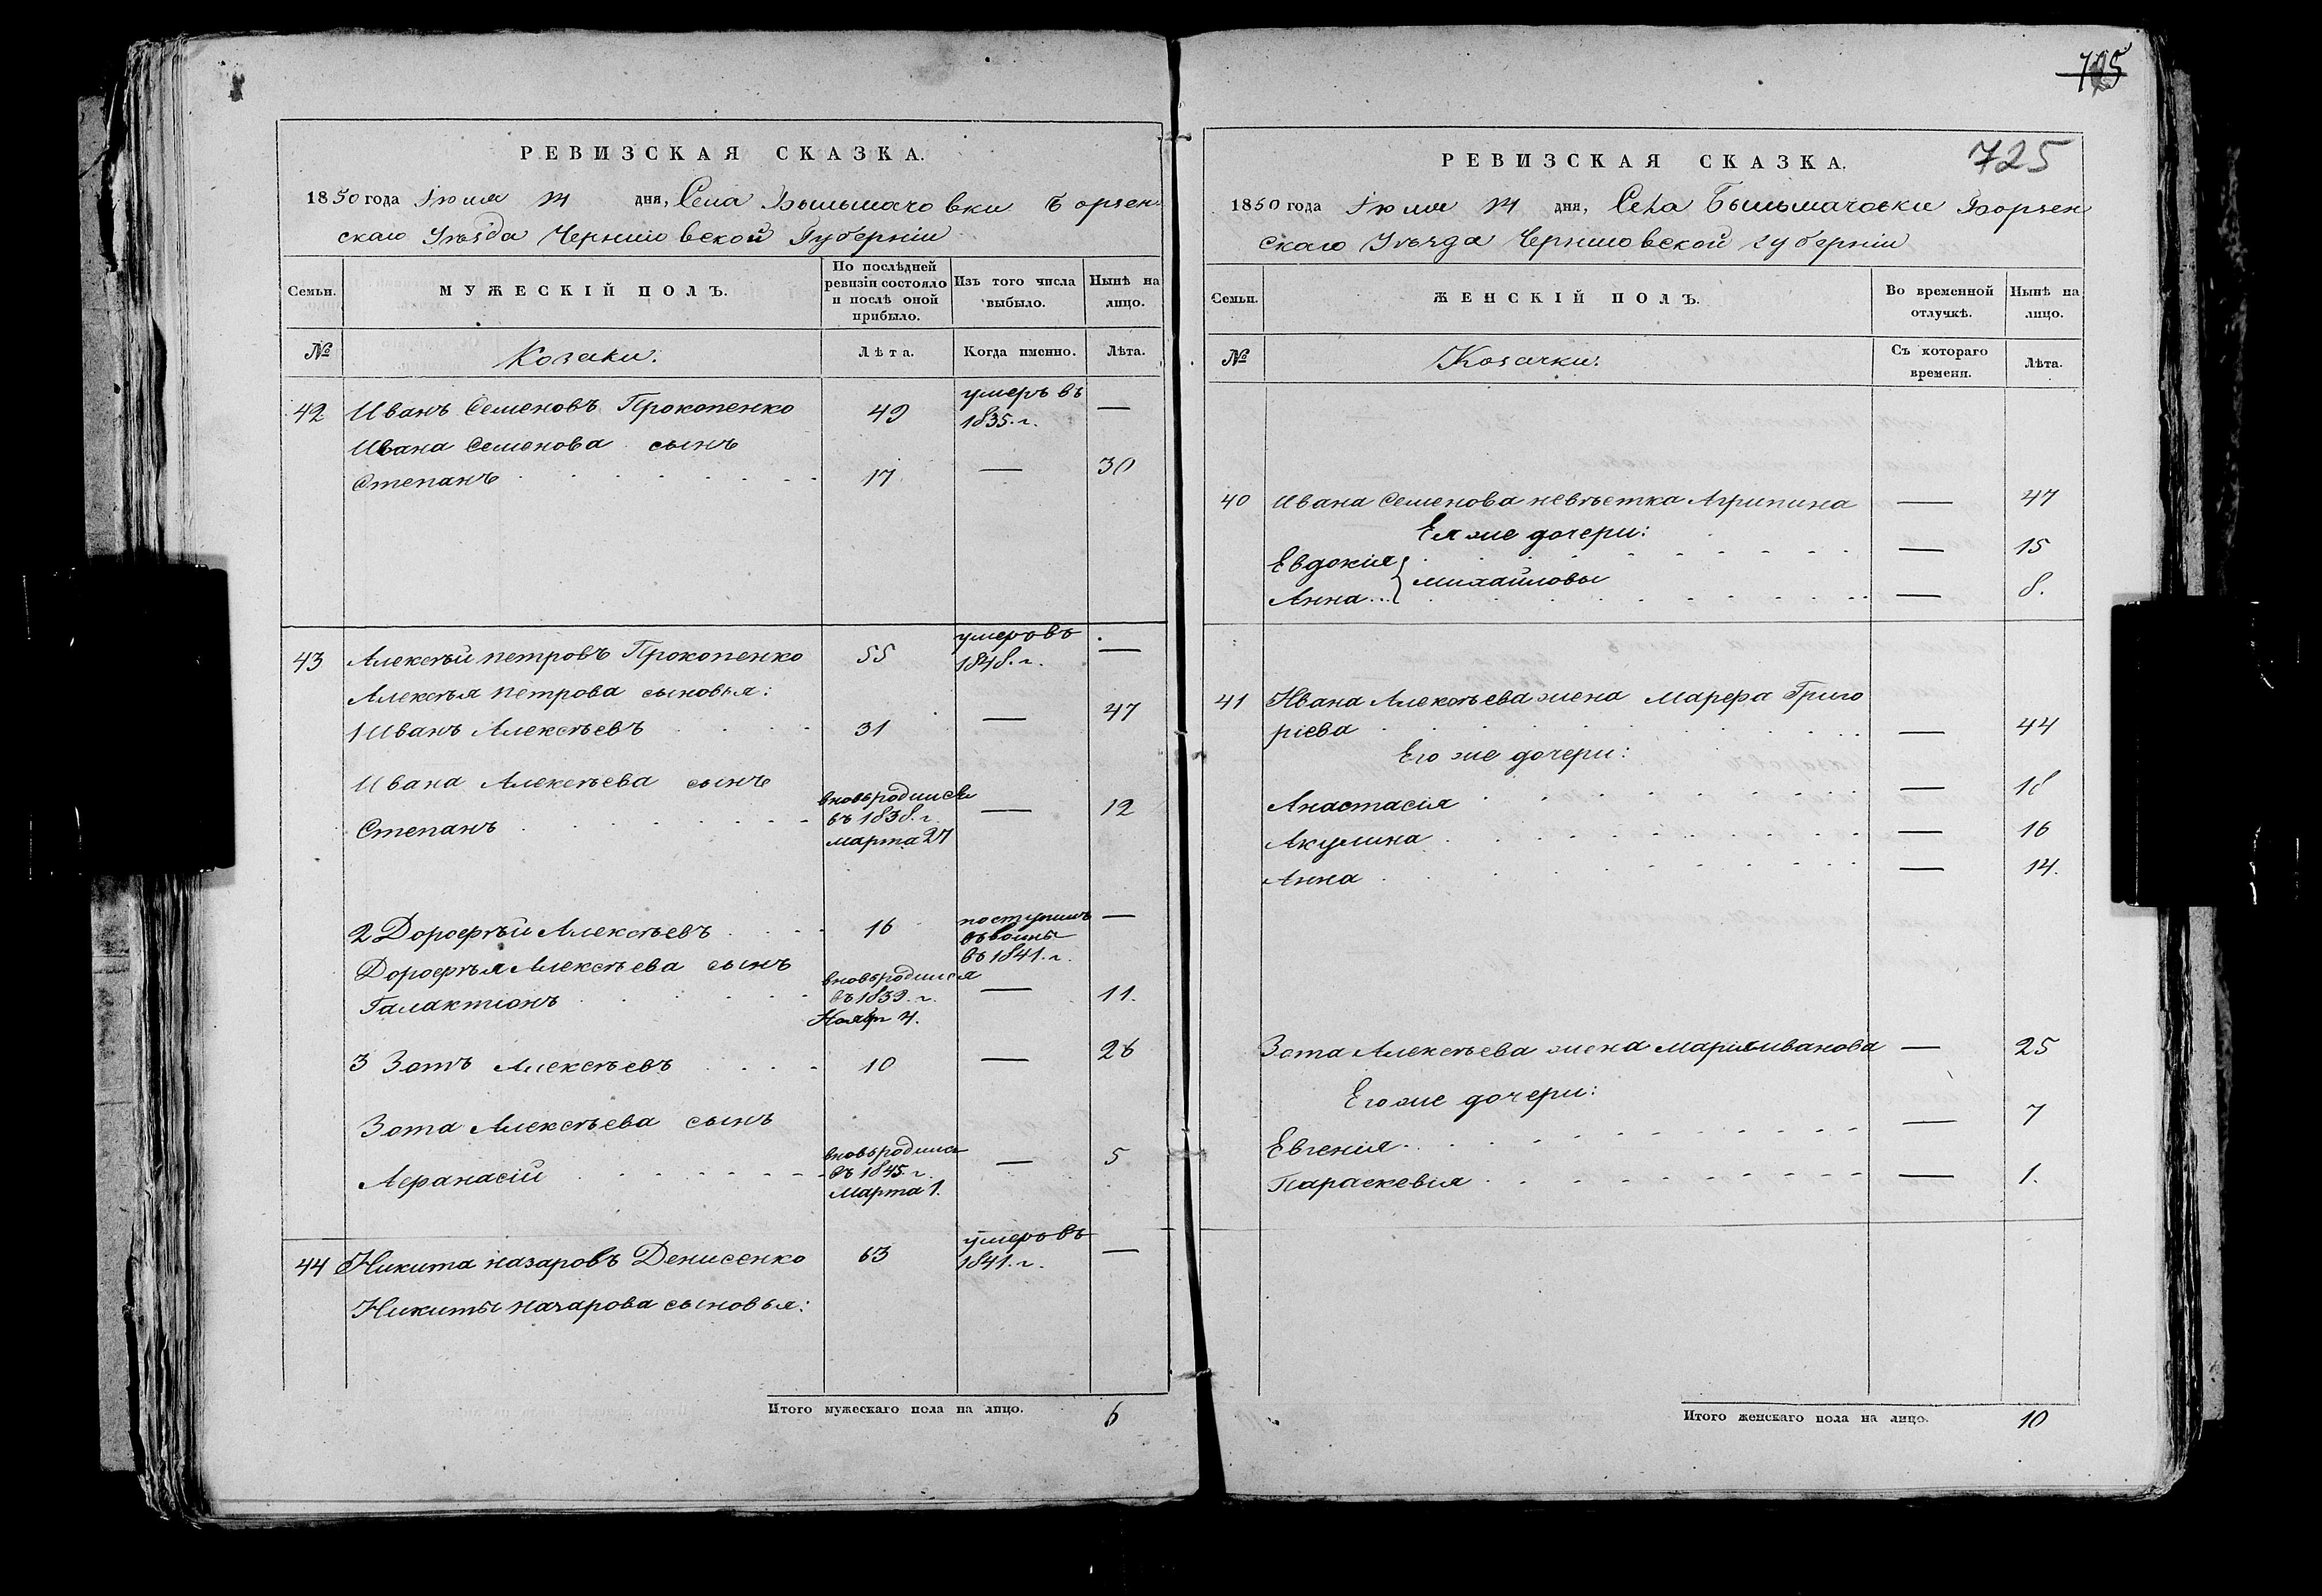 РЕВИЗСКАЯ СКАЗКА.
1850 года Іюля дня, Села Бильмачовки Борзен
скаго Уѣзда Черниговской Губерніи
Семьи. МУЖЕСКІЙ ПОЛЪ. По послѣдней ревизіи состояло и послѣ оной прибыло. Изъ того числа выбыло. Нынѣ на лицо.
№ Козаки. Лѣта. Когда именно. Лѣта.
42 Иванъ Семеновъ Прокопенко 49 умеръ въ 1835. г. —
Ивана Семенова сынъ
Степанъ 17 — 30
43 Алексѣй петровъ Прокопенко 55 умеръ въ 1848. г. —
Алексѣя петрова сыновья:
1 Иванъ Алексѣевъ 31 — 47
Ивана Алексѣева сынъ
Степанъ вновьродился въ 1838. г. марта 27 — 12
2 Дорофѣй Алексѣевъ 16 поступилъ въ воины въ 1841. г. —
Дорофѣя Алексѣева сынъ
Галактіонъ вновьродился въ 1839. г. Ноябр 4. — 11.
3 Зотъ Алексѣевъ 10 — 26
Зота Алексѣева сынъ
Афанасій вновьродился въ 1845. г. Марта 1. — 5
44 Никита назаровъ Денисенко 63 умеръ въ 1841. г. —
Никиты назарова сыновья:
Итого мужескаго пола на лицо. 6
715
725
РЕВИЗСКАЯ СКАЗКА.
1850 года Іюля дня, Села Бильмачовки Борзен
скаго Уѣзда Черниговской губерніи
Семьи. ЖЕНСКІЙ ПОЛЪ. Во временной отлучкѣ. Нынѣ на лицо.
№ Козачки. Съ котораго времени. Лѣта.
40 Ивана Семенова невѣстка Агрипина — 47
Ея же дочери:
Евдокія — 15
михайловы
Анна — 8.
41 Ивана Алексѣева жена Марфа Григо
ріева — 44
Его же дочери:
Анастасія — 18
Акулина — 16
Анна — 14.
Зота Алексѣева жена Марія иванова — 25
Его же дочери:
Евгенія — 7
Параскевія — 1.
Итого женскаго пола на лицо. 10